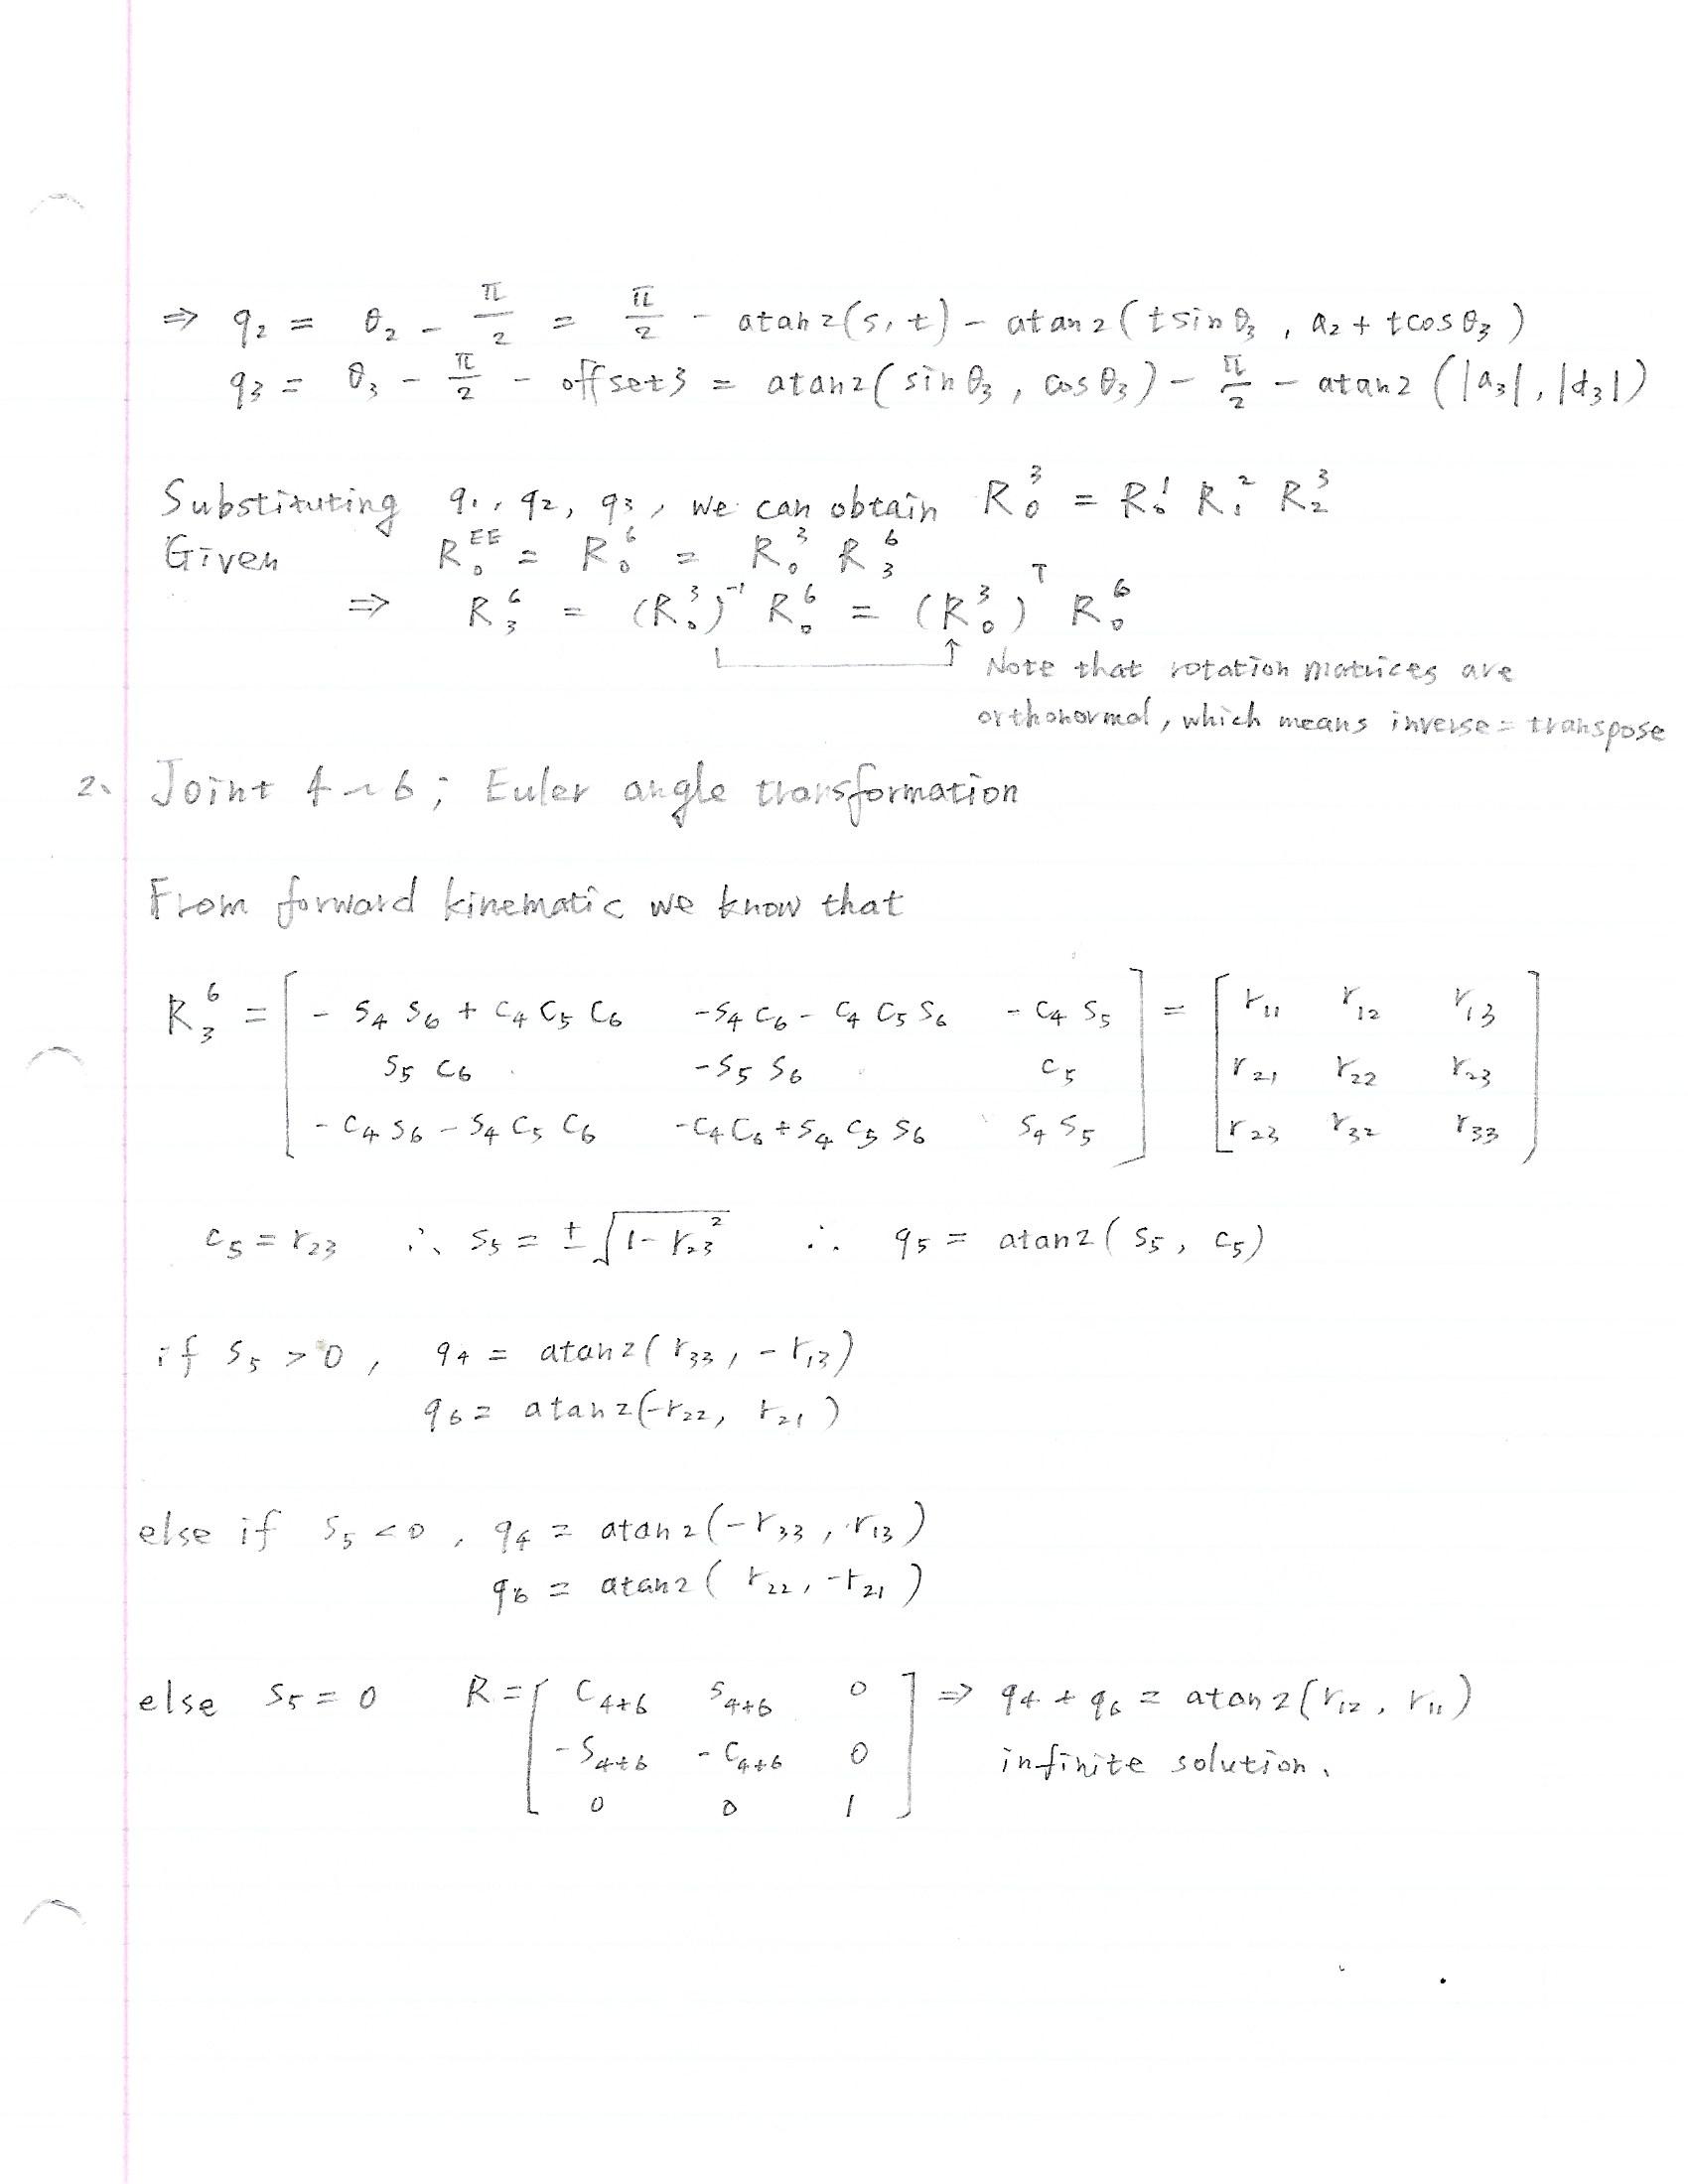 ⇒ q₂ = θ₂ - π/2 = π/2 - atan2(s, t) - atan2(t sin θ₃ , a₂ + t cos θ₃)
q₃ = θ₃ - π/2 - offset3 = atan2(sin θ₃, cos θ₃) - π/2 - atan2(|a₃|, |d₃|)
Substituting q₁, q₂, q₃, we can obtain R₀³ = R₀¹ R₁² R₂³
Given R₀ᴱᴱ = R₀⁶ = R₀³ R₃⁶
⇒ R₃⁶ = (R₀³)⁻¹ R₀⁶ = (R₀³)ᵀ R₀⁶
↑ Note that rotation matrices are
orthonormal, which means inverse = transpose
2. Joint 4~6; Euler angle transformation
From forward kinematic we know that
R₃⁶ = [ -S₄S₆ + C₄C₅C₆   -S₄C₆ - C₄C₅S₆   -C₄S₅ ] = [ r₁₁ r₁₂ r₁₃ ]
S₅C₆   -S₅S₆   C₅   r₂₁ r₂₂ r₂₃
-C₄S₆ - S₄C₅C₆   -C₄C₆ + S₄C₅S₆   S₄S₅   r₂₃ r₃₂ r₃₃
C₅ = r₂₃ ∴ S₅ = ±√(1 - r₂₃²) ∴ q₅ = atan2(S₅, C₅)
if S₅ > 0, q₄ = atan2(r₃₃, -r₁₃)
q₆ = atan2(-r₂₂, r₂₁)
else if S₅ < 0, q₄ = atan2(-r₃₃, r₁₃)
q₆ = atan2(r₂₂, -r₂₁)
else S₅ = 0 R = [ C₄₊₆ S₄₊₆ 0 ] ⇒ q₄ + q₆ = atan2(r₁₂, r₁₁)
-S₄₊₆ -C₄₊₆ 0 infinite solution.
0 0 1